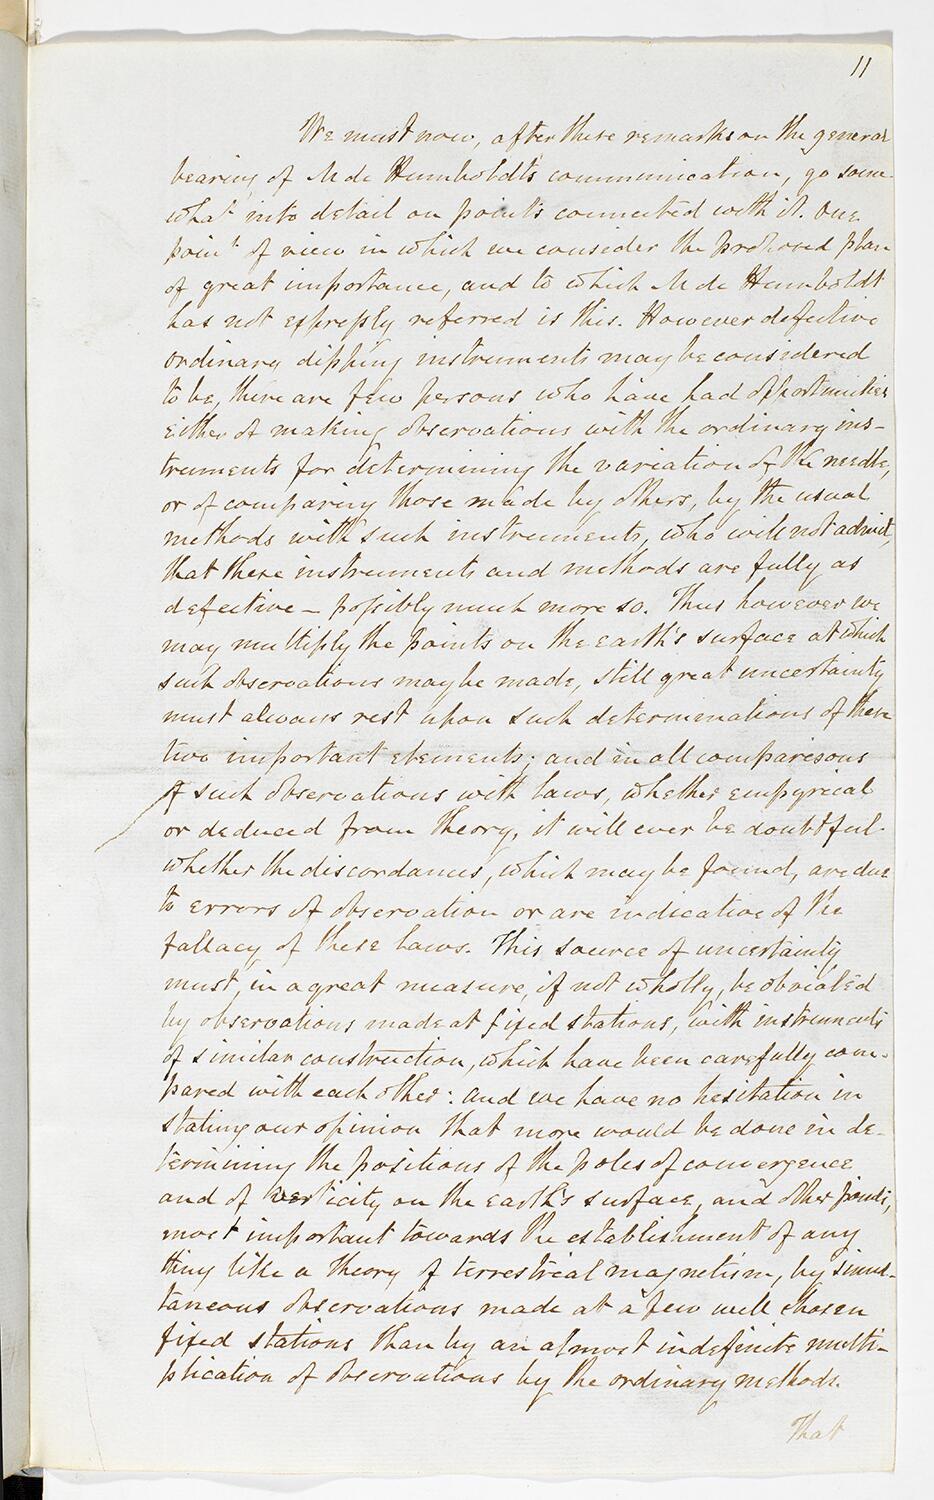 11
We must now, after these remarks on the general
bearing of M de Humboldt's communication, go some-
what into detail on points connected with it. One
point of view in which we consider the proposed plan
of great importance, and to which M de Humboldt
has not expressly referred is this. However defective
ordinary dipping instruments may be considered
to be, there are few persons who have had opportunities
either of making observations with the ordinary ins-
truments for determining the variation of the needle,
or of comparing those made by others, by the usual
methods with such instruments, who will not admit,
that these instruments and methods are fully as
defective – possibly much more so. Thus however we
may multiply the points on the earth's surface at which
such observations may be made, still great uncertainty
must always rest upon such determinations of these
two important elements; and in all comparisons
of such observations with laws, whether empyrical
or deduced from theory, it will ever be doubtful
whether the discordances, which may be found, are due
to errors of observation or are indicative of the
fallacy of these laws. This source of uncertainty
must, in a great measure, if not wholly, be obviated
by observations made at fixed stations, with instruments
of similar construction, which have been carefully com-
pared with each other: and we have no hesitation in
stating our opinion that more would be done in de-
termining the positions of the poles of convergence
and of verticity on the earth's surface, and other points,
most important towards the establishment of any
thing like a theory of terrestrial magnetism, by simul-
taneous observations made at a few well chosen
fixed stations than by an almost indefinite multi-
plication of observations by the ordinary methods.
That